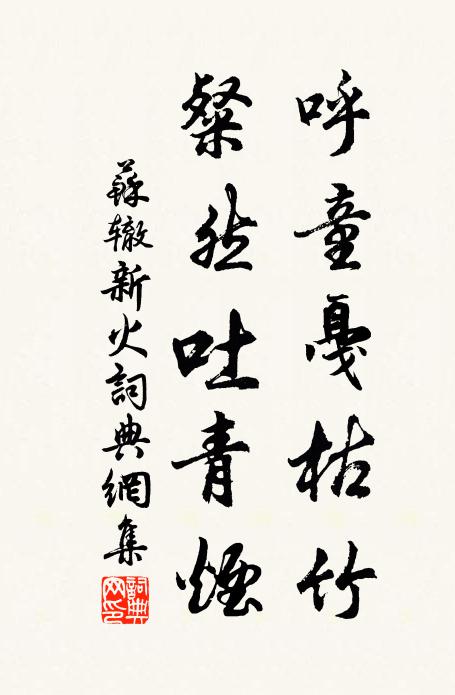 呼童戛枯竹
粲然吐青煙
蘇辙新火詞典網集
詞典网印